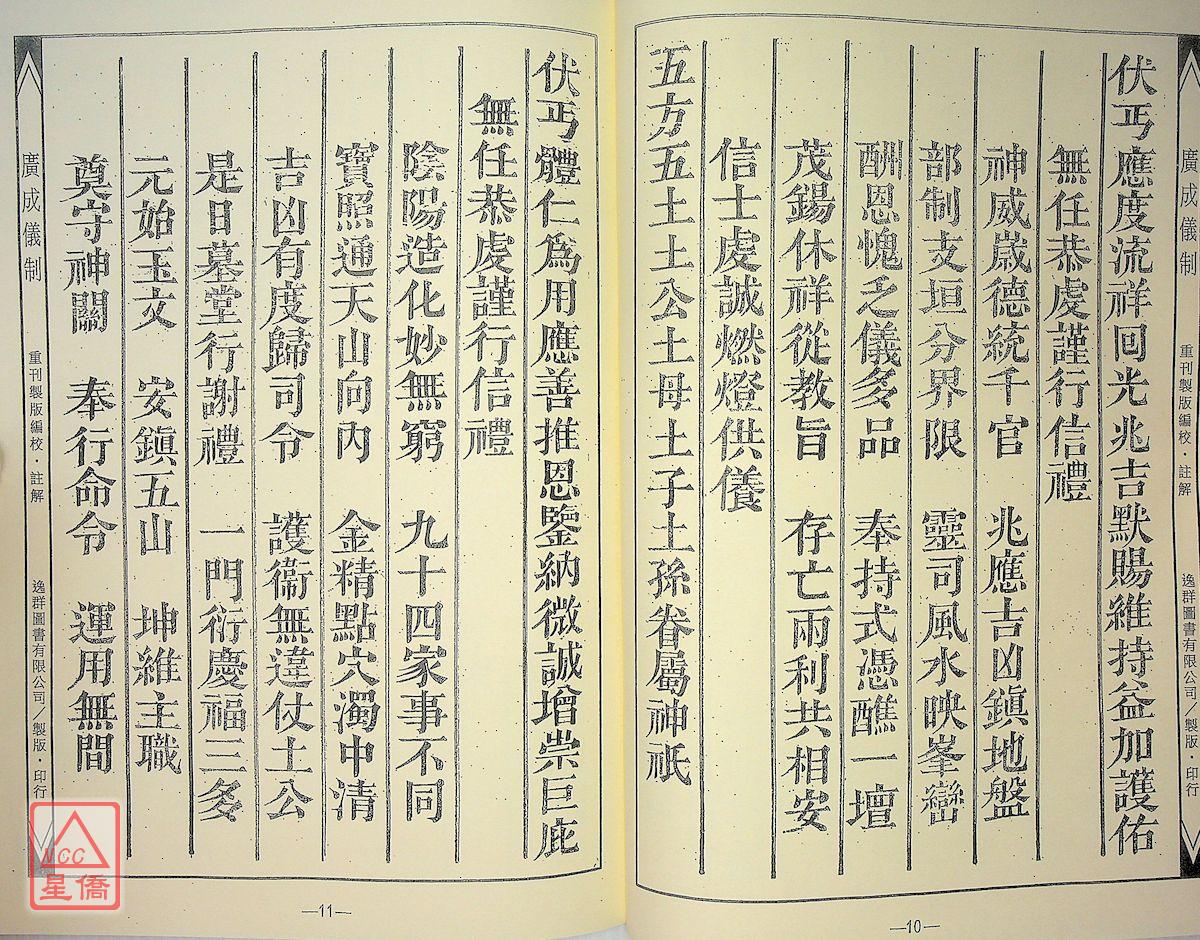 廣成儀制 重刊製版編校・註解 逸群圖書有限公司／製版・印行
伏丐應度流祥回光兆吉默賜維持益加護佑
無任恭虔謹行信禮
神威歲德統千官 兆應吉凶鎮地盤
部制支垣分界限 靈司風水映峯巒
酬恩愧乏儀多品 奉持式憑醮一壇
茂錫休祥從教旨 存亡兩利共相安
信士虔誠燃燈供養
五方五土土公土母土子土孫眷屬神祇
—10—
伏丐體仁爲用應善推恩鑒納微誠增崇巨庇
無任恭虔謹行信禮
陰陽造化妙無窮 九十四家事不同
寶照通天山向內 金精點穴濁中清
吉凶有度歸司令 護衞無違仗土公
是日墓堂行謝禮 一門衍慶福三多
元始玉文 安鎮五山 坤維主職
奠守神關 奉行命令 運用無間
廣成儀制 重刊製版編校・註解 逸群圖書有限公司／製版・印行
—11—
NCC
星僑